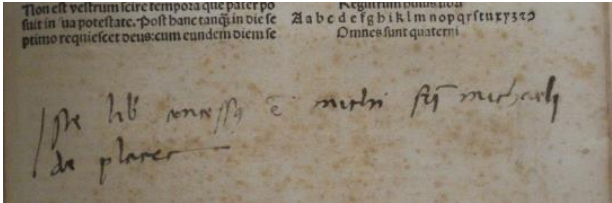 Non est vestrum scire tempora que pater po
suit in sua potestate. Post hanc tanq̃ in die se
ptimo requiescet deus: cum eundem diem se
Registrum huius libri
A a b c d e f g h i k l m n o p q r s t u x y z ꝛ ꝯ
Omnes sunt quaterni
Iste lib̄ concessꝯ ē michi fr̄i michaeli
de placea